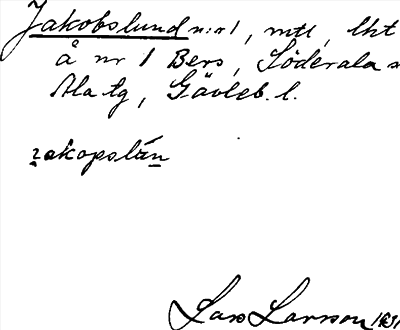 Jakobslund nr 1, mtl, lht
å nr 1 Berg, Söderala s
Ala tg, Gävleb. l.
jakopslän
Lars Larsson 1931